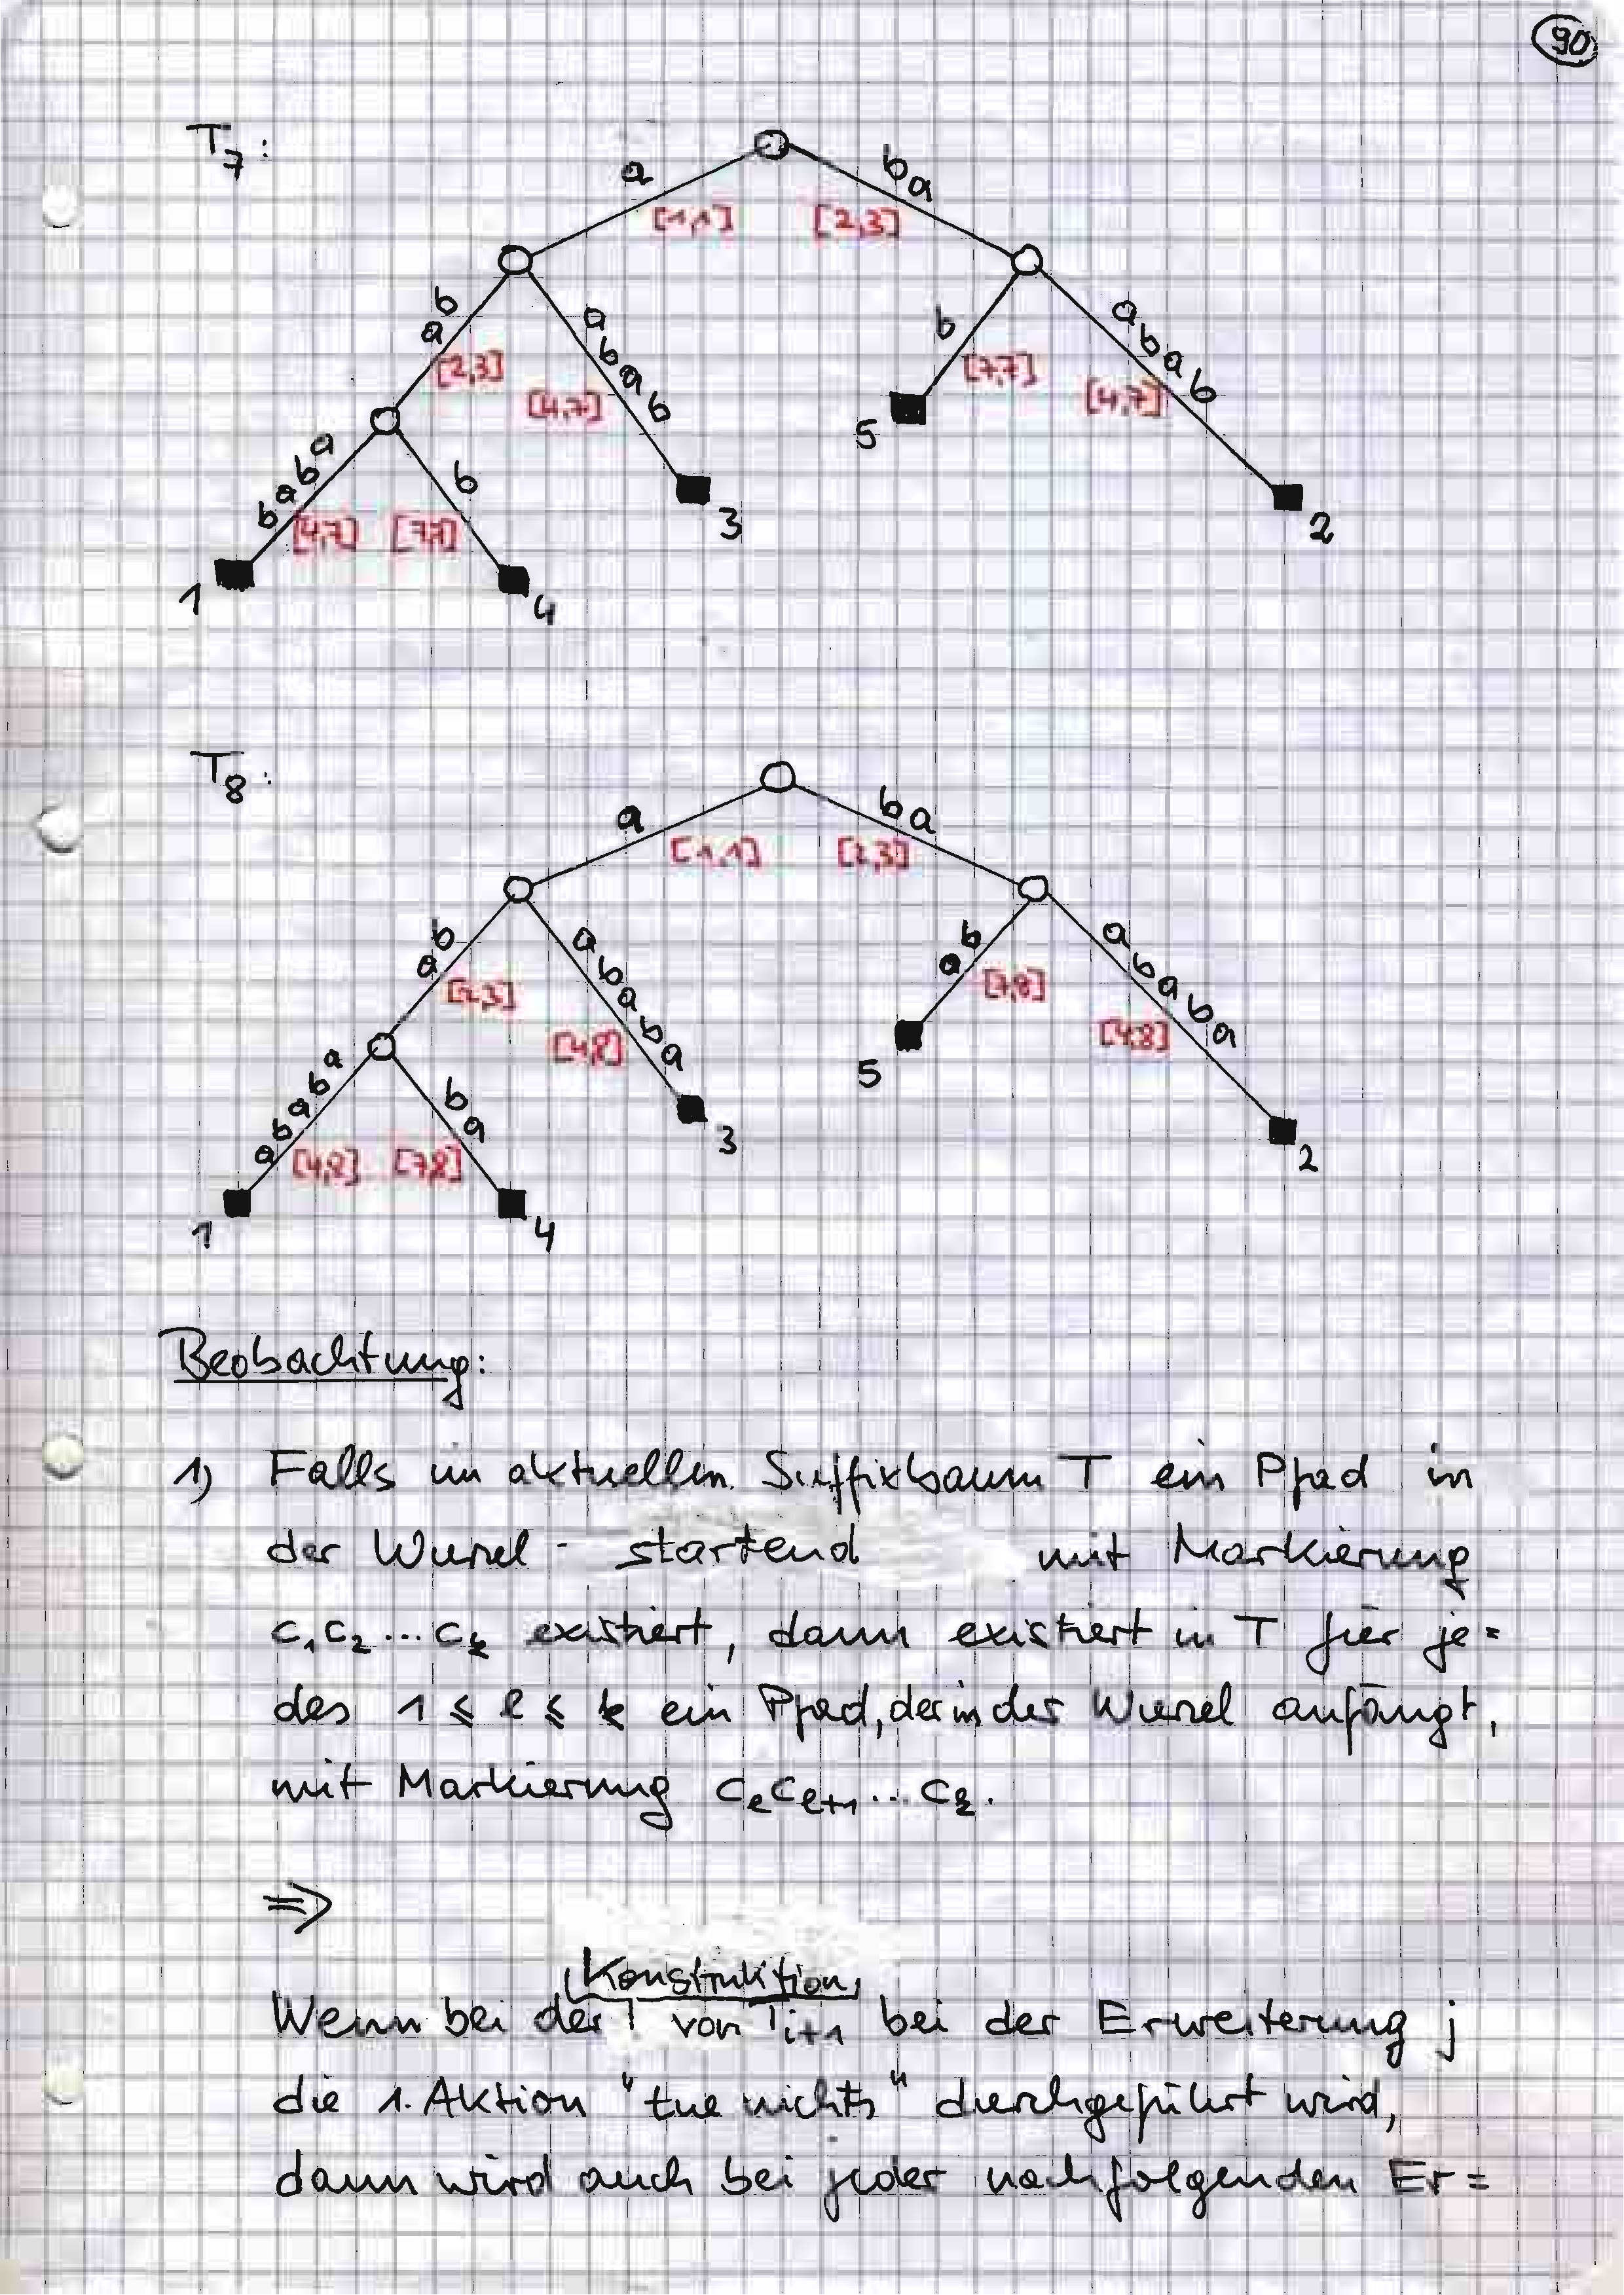 90
T7:
a
ba
[1,1]
[2,3]
b
a
[2,3]
a
b
a
b
[4,7]
b
[7,7]
a
b
a
b
[4,7]
a
b
a
b
[4,7]
b
[7,7]
5
3
2
1
4
T8:
a
ba
[1,1]
[2,3]
b
a
[2,3]
a
b
a
b
a
[4,8]
b
a
[7,8]
a
b
a
b
a
[4,8]
a
b
a
b
a
[4,8]
b
a
[7,8]
5
3
2
1
4
Beobachtung:
1) Falls im aktuellen Suffixbaum T ein Pfad in
der Wurzel startend mit Markierung
c1c2...ck existiert, dann existiert in T für je=
des 1 ≤ l ≤ k ein Pfad, der in der Wurzel anfängt,
mit Markierung clcl+1...ck.
⇒
Konstruktion
Wenn bei der von Ti+1 bei der Erweiterung j
die 1. Aktion "tue nichts" durchgeführt wird,
dann wird auch bei jeder nachfolgenden Er=